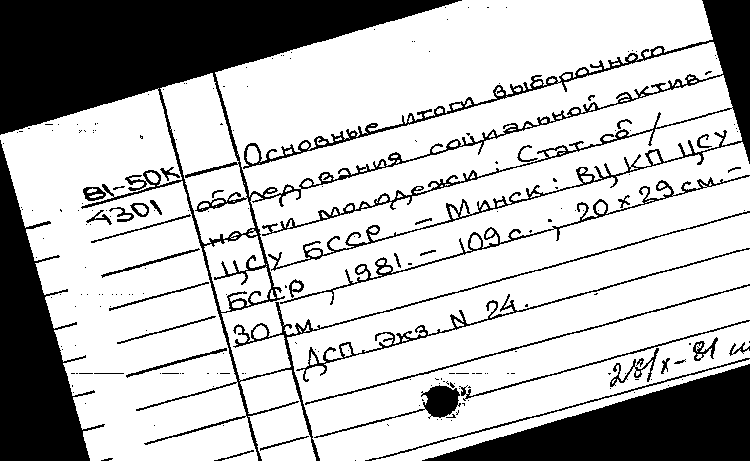 Основные итоги выборочного
81-50К обследования социальной актив-
4301 ности молодежи : Стат. сб /
ЦСУ БССР. - Минск : ВЦ КП ЦСУ
БССР, 1981. - 109 с. ; 20 х 29 см. -
30 см.
ДСП. Экз. N 24.
28/X-81